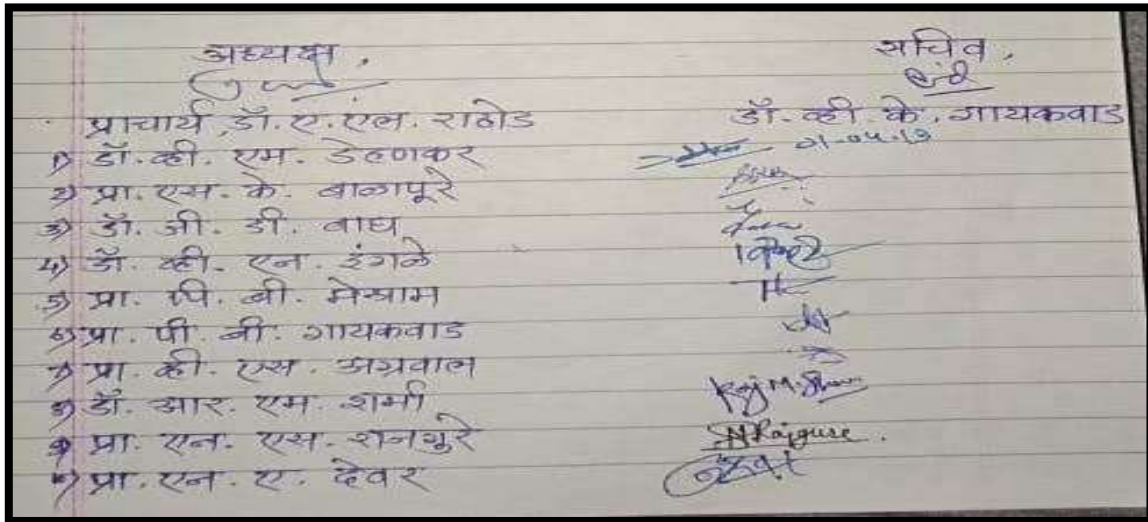 अध्यक्ष, सचिव,
प्राचार्य डॉ. ए. एल. राठोड डॉ. व्ही. के. गायकवाड
1) डॉ. व्ही. एम. डेहणकर
2) प्रा. एस. के. बाळापूरे
3) डॉ. जी. डी. वाघ
4) डॉ. व्ही. एन. इंगळे
5) प्रा. पी. बी. मेश्राम
6) प्रा. पी. बी. गायकवाड
7) प्रा. व्ही. एस. अग्रवाल
8) डॉ. आर. एम. शर्मा Raj M. Sharma
9) प्रा. एन. एस. राजगुरे NRajgure.
10) प्रा. एन. ए. देवर